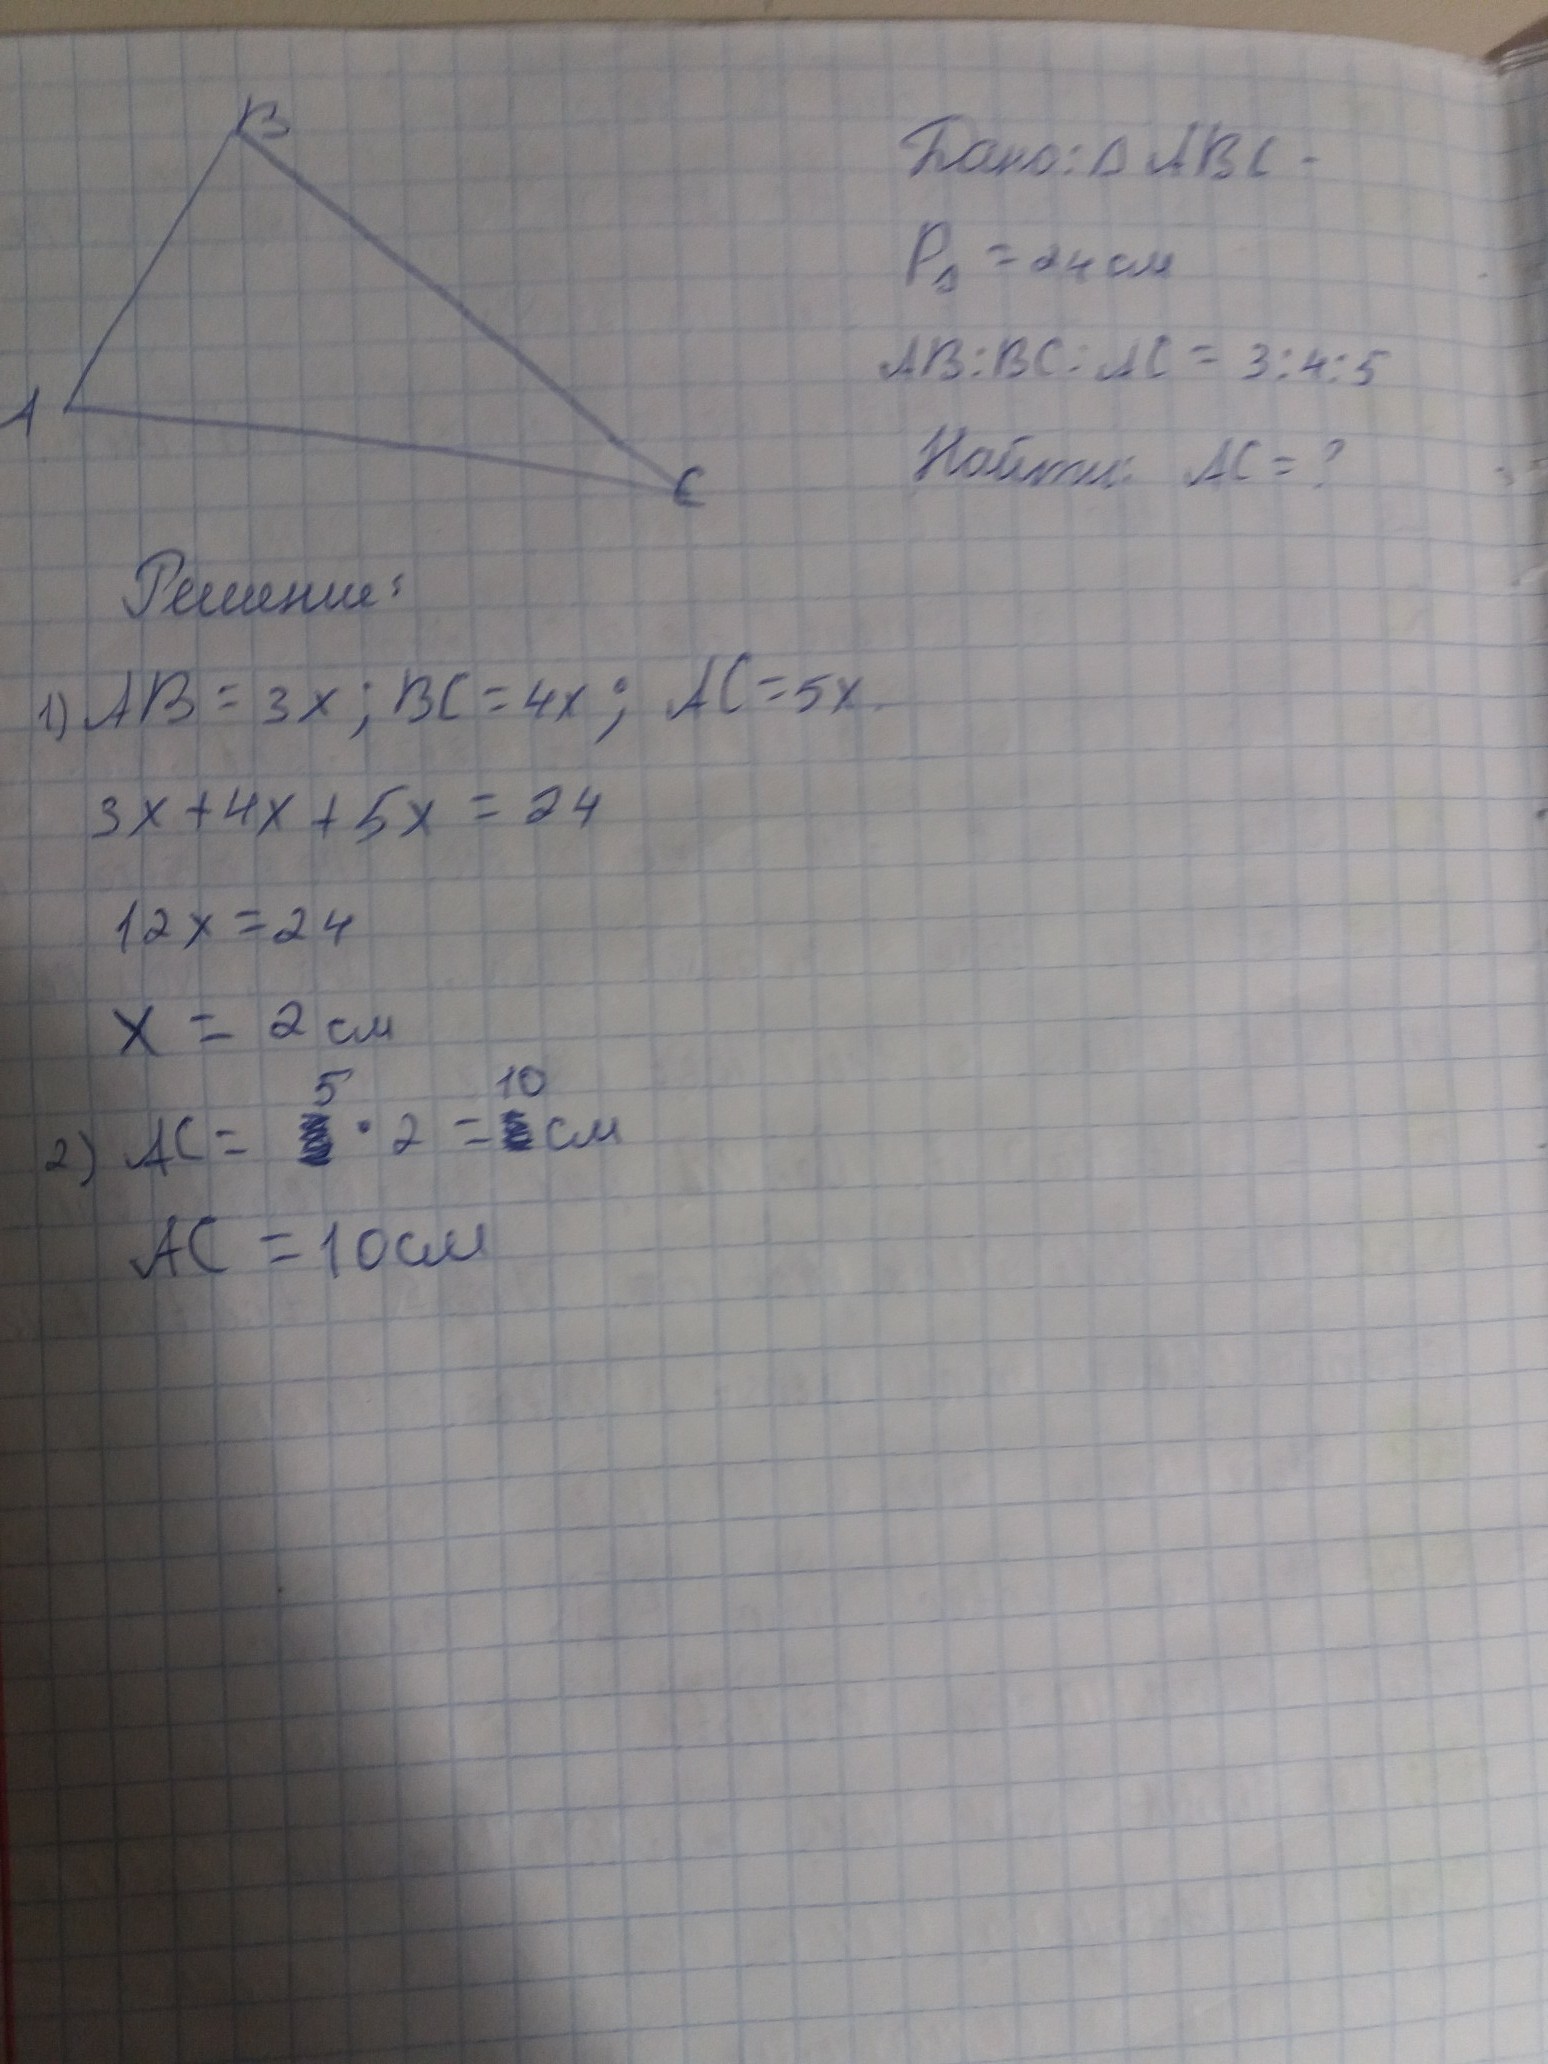 B
A
C
Дано: Δ ABC -
PΔ = 24 см
AB:BC:AC = 3:4:5
Найти: AC = ?
Решение:
1) AB = 3x; BC = 4x; AC = 5x.
3x + 4x + 5x = 24
12x = 24
x = 2 см
2) AC = 5 · 2 = 10 см
AC = 10 см